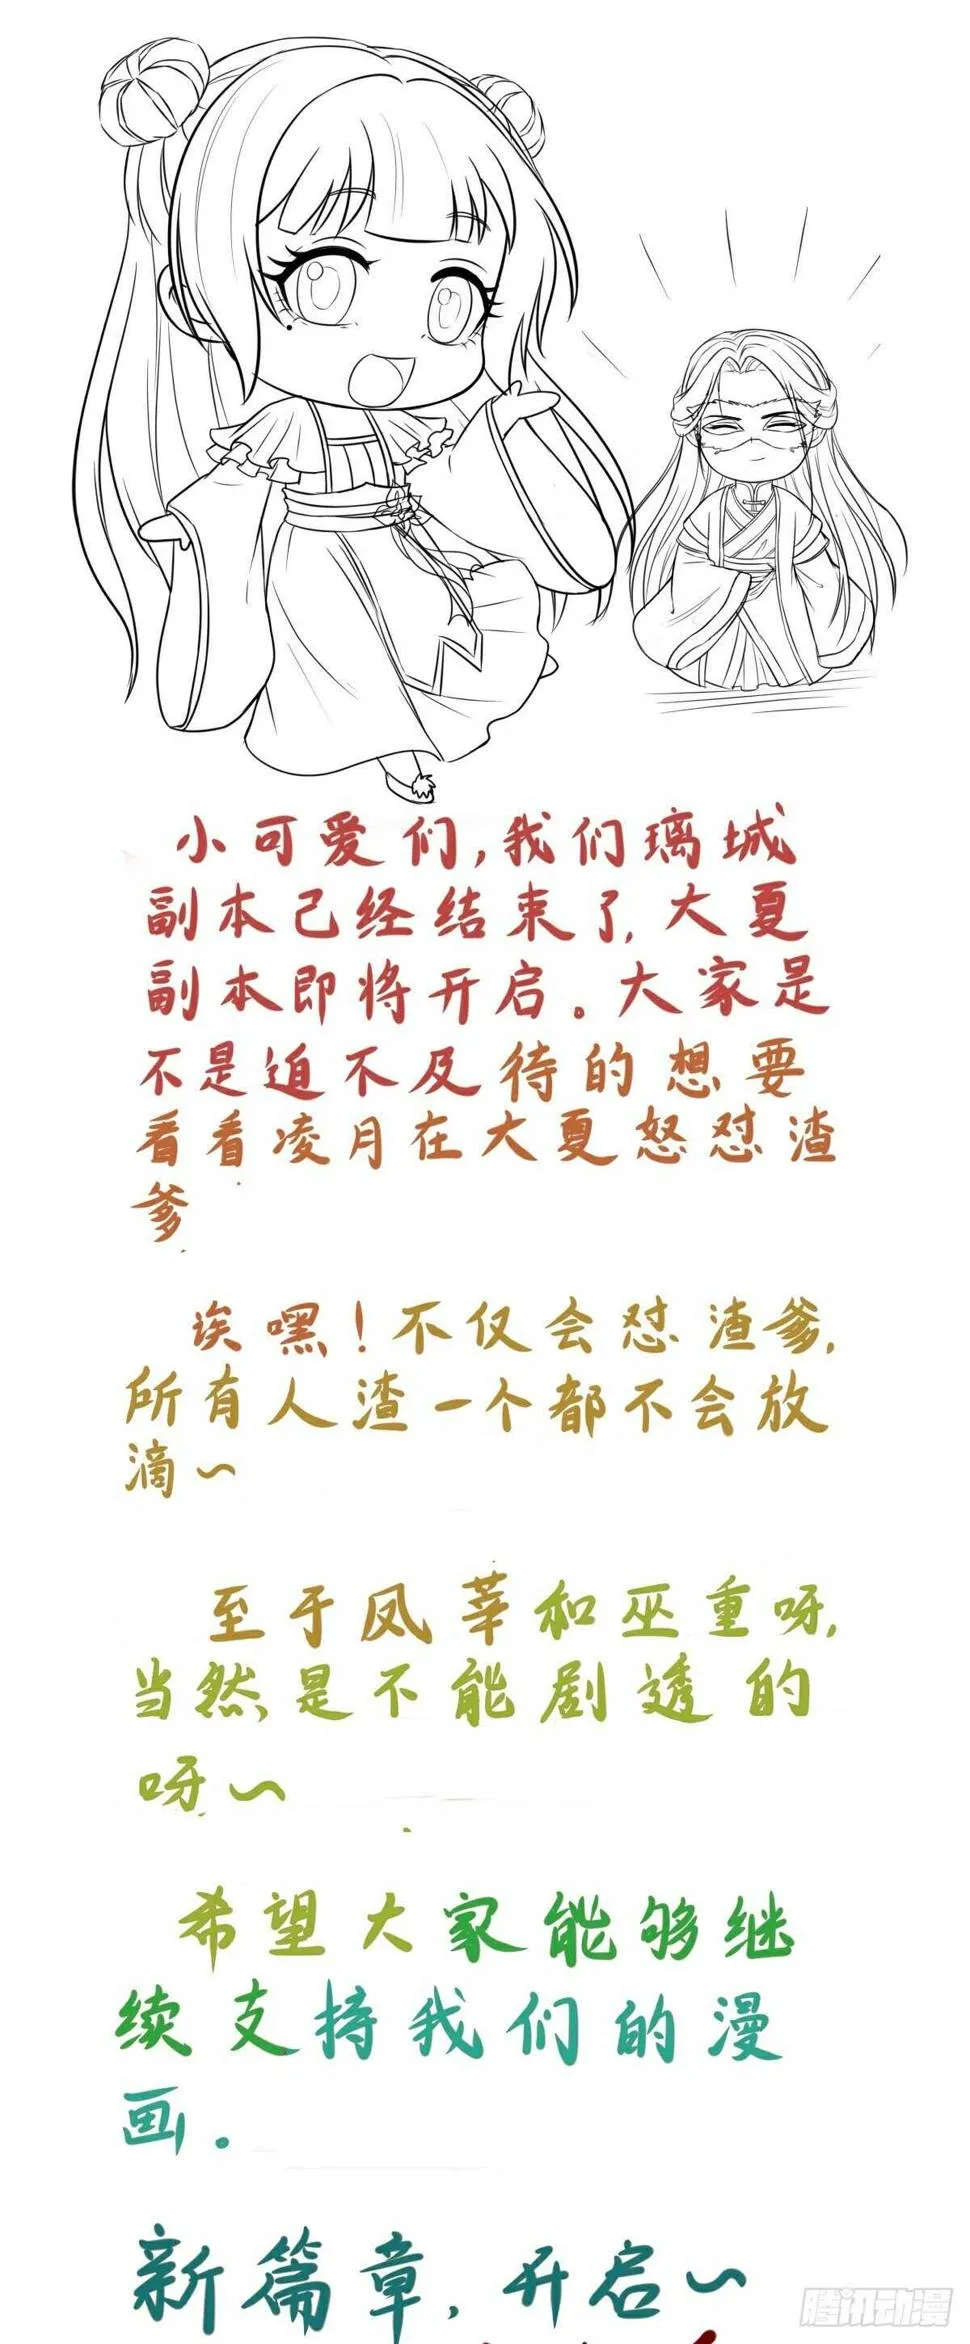 小可爱们,我们璃城
副本已经结束了,大夏
副本即将开启。大家是
不是迫不及待的想要
看看凌月在大夏怒怼渣
爹
诶嘿!不仅会怼渣爹,
所有人渣一个都不会放
滴~
至于凤莘和巫重呀,
当然是不能剧透的
呀~
希望大家能够继
续支持我们的漫
画。
新篇章,开启~
腾讯动漫